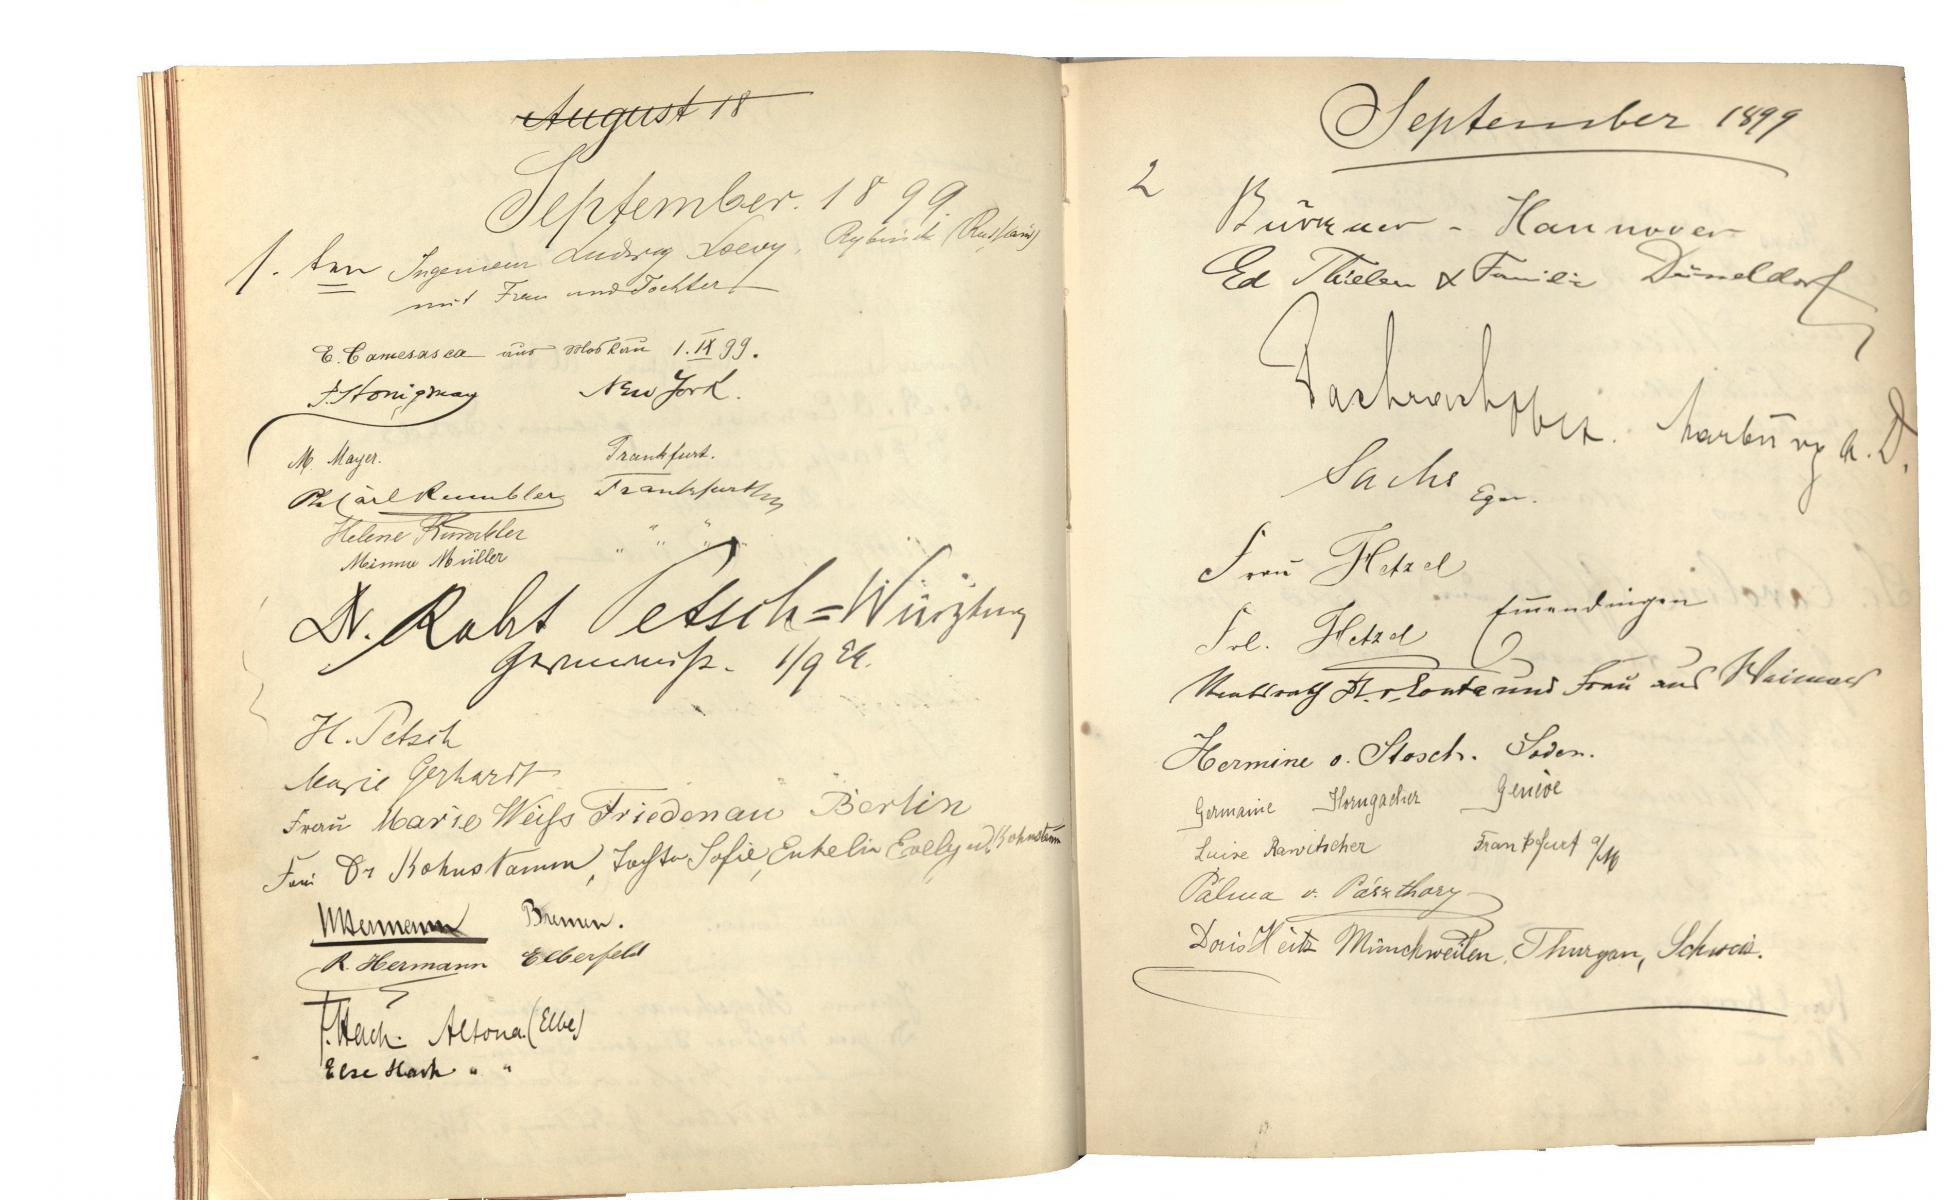 August 18
September. 1899
1. ten Ingenieur Ludwig Loevy, Rybinsk (Russland)
mit Frau und Tochter
E. Camesasca aus Moskau 1. IX 99.
J. Honigman New York.
M. Mayer. Frankfurt.
Carl Rumbler Frankfurt
Helene Rumbler " " "
Minna Müller " " "
Dr. Robt Petsch = Würzburg
1/9
H. Petsch
Marie Gerhardt
Frau Marie Weiss Friedenau Berlin
Frau Dr Kohnstamm, Tochter Sofie, Enkelin Evelyn Kohnstamm
Bremen.
R. Hermann Elberfeld
F. Hach. Altona (Elbe)
Else Hach " "
September 1899
2
Hannover
Ed Thielen & Familie Düsseldorf
Marburg a. D.
Sachs Eger.
Frau Hetzel
Frl. Hetzel Emmendingen
und Frau aus Weimar
Hermine v. Stosch. Soden.
Germaine Horngacher Genève
Luise Rawitscher Frankfurt a/M
Pálma v. Pászthory
Doris Heitz Münchweilen, Thurgau, Schweiz.